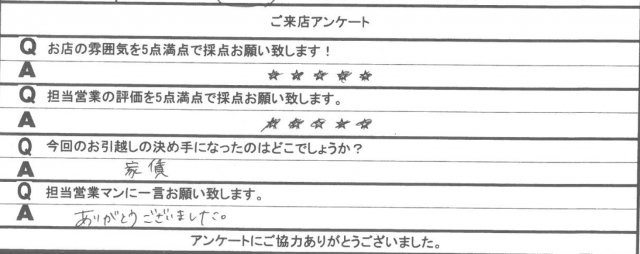 ご来店アンケート
Q お店の雰囲気を5点満点で採点お願い致します!
A ☆☆☆☆☆
Q 担当営業の評価を5点満点で採点お願い致します。
A ☆☆☆☆☆
Q 今回のお引越しの決め手になったのはどこでしょうか?
A 家債
Q 担当営業マンに一言お願い致します。
A ありがとうございました。
アンケートにご協力ありがとうございました。